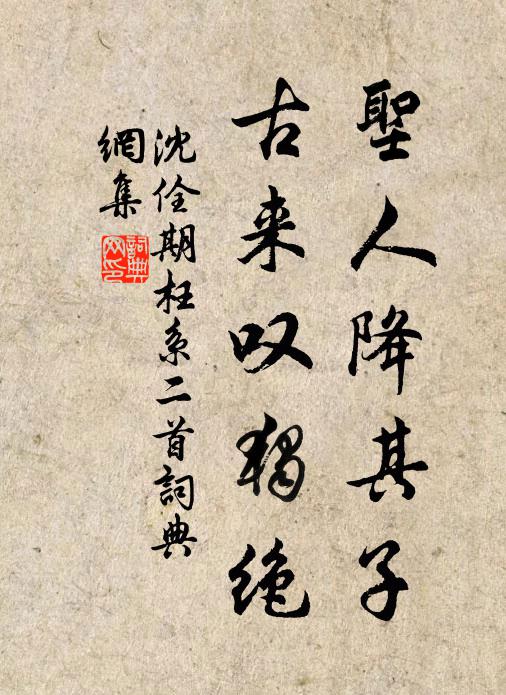 聖人降其子
古来叹獨绝
沈佺期枉系二首詞典
網集
詞典
网印